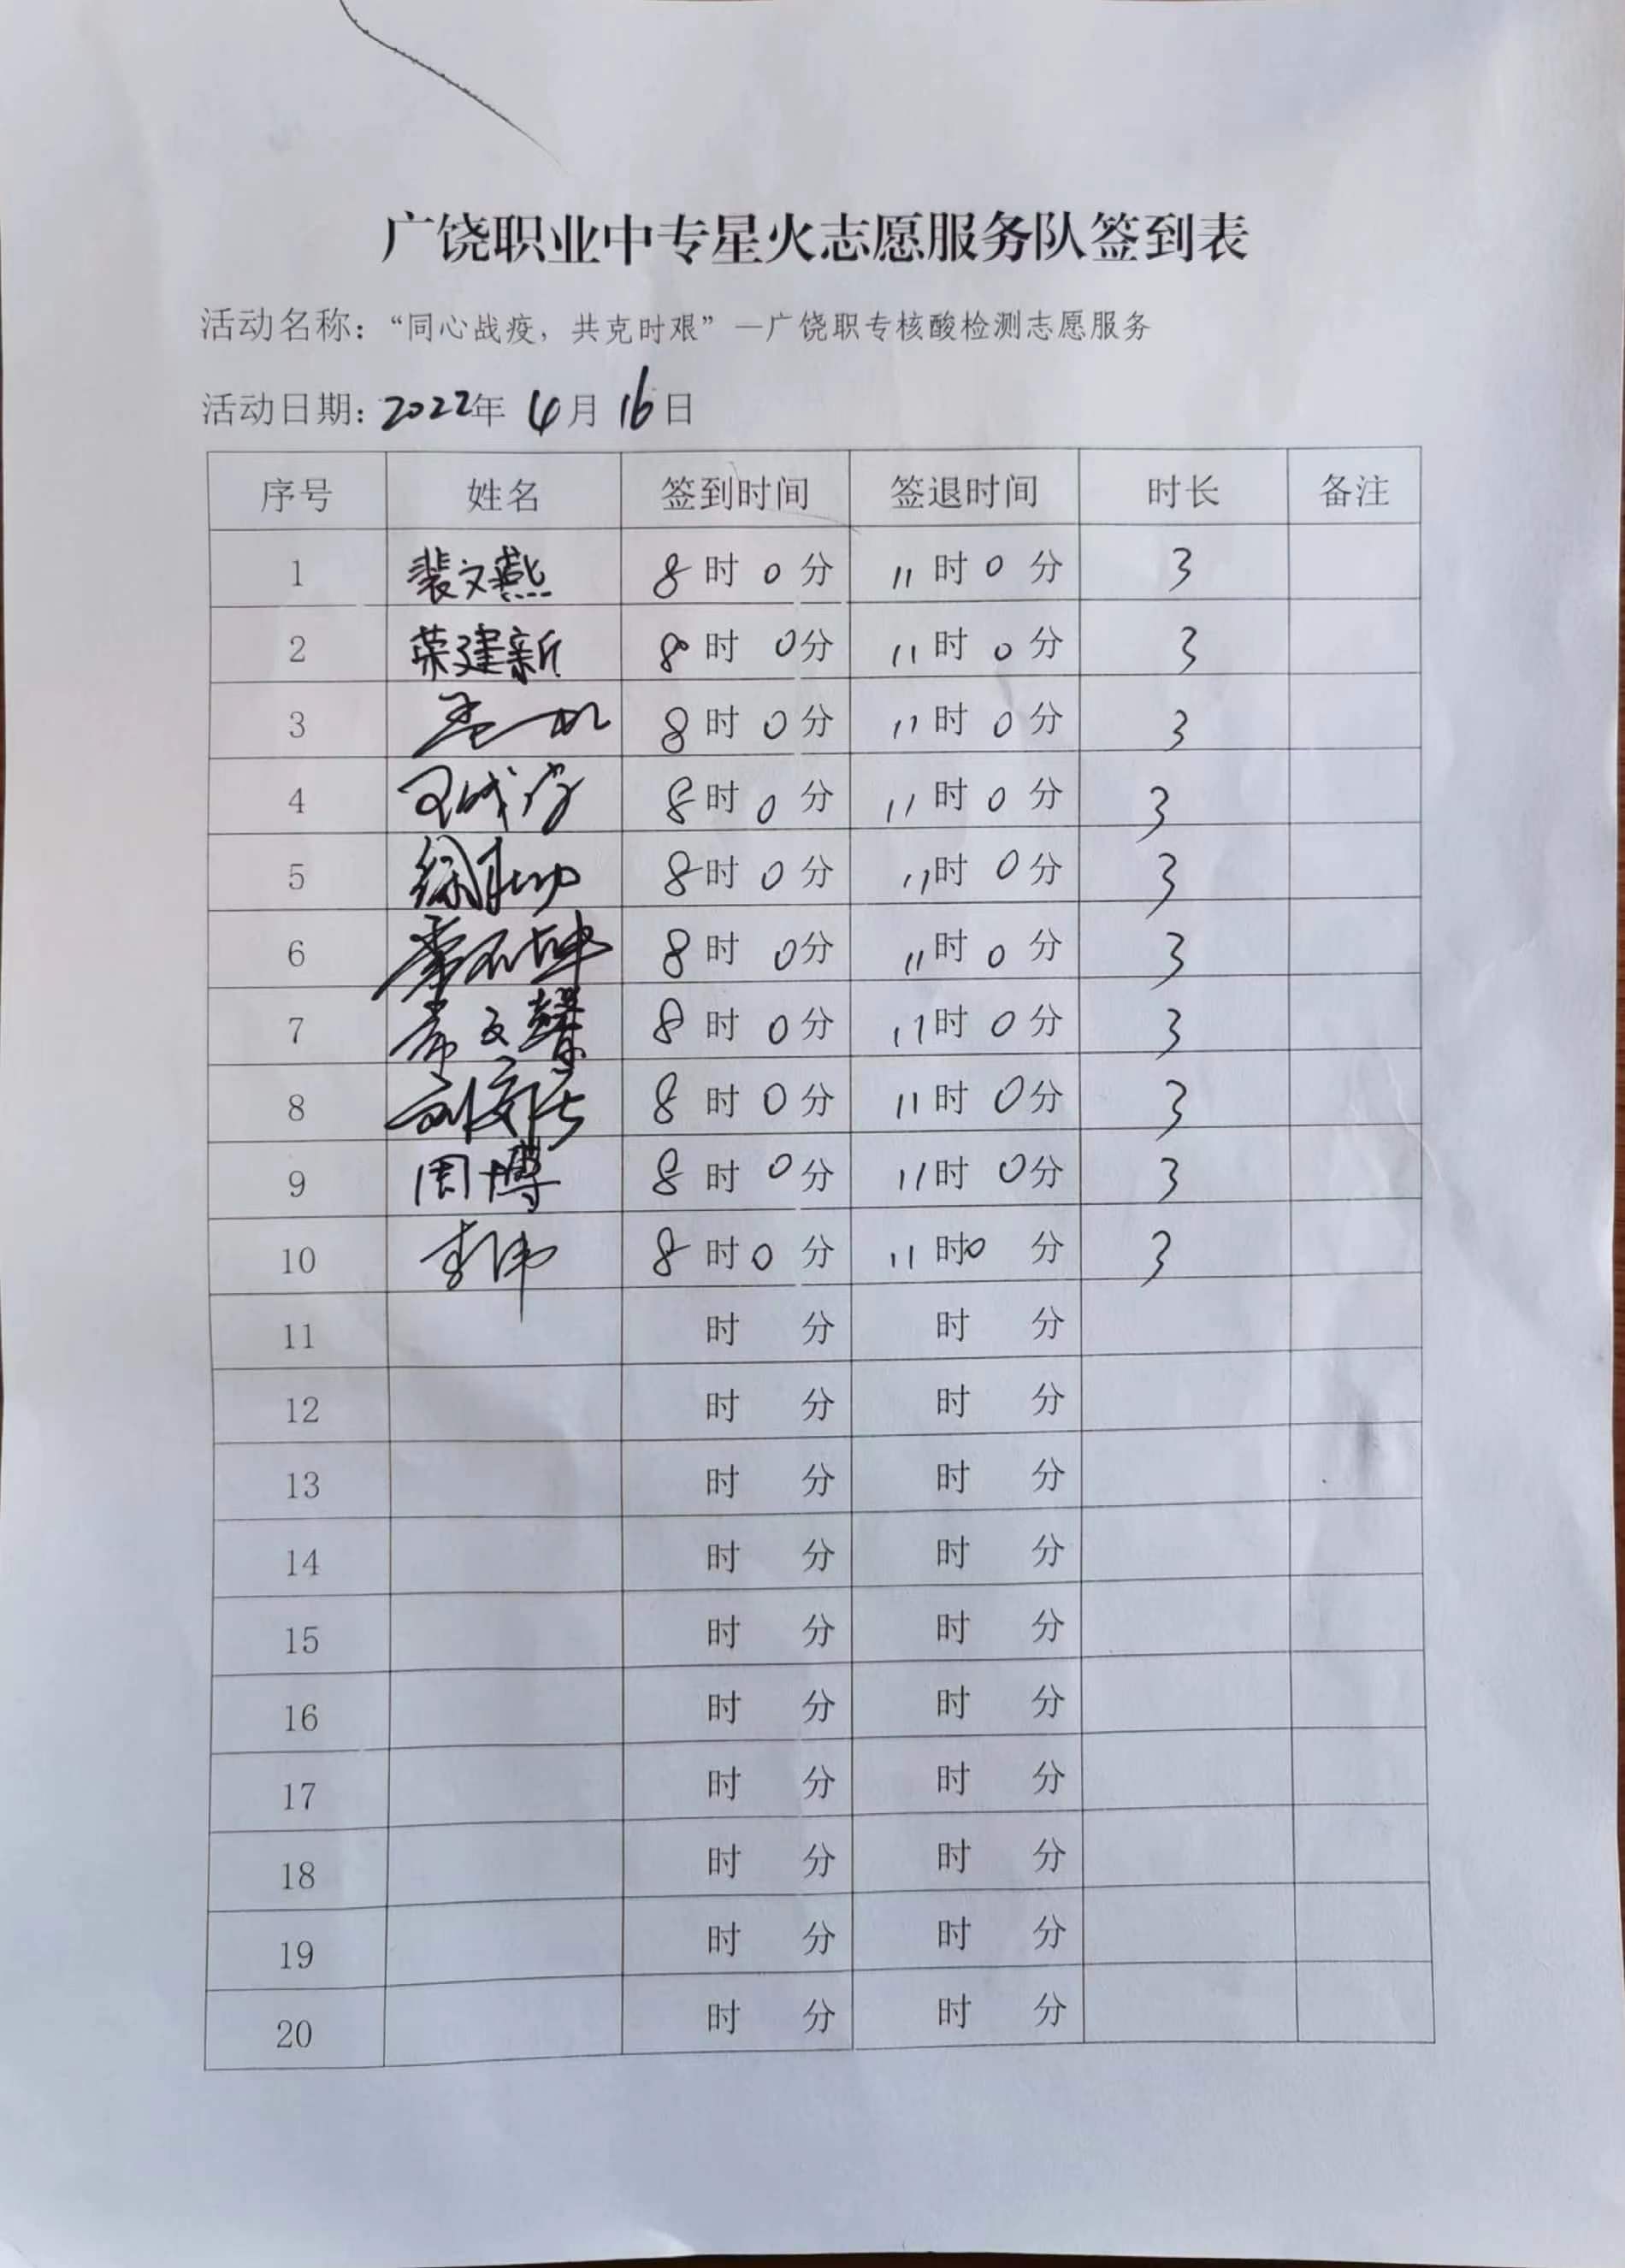 广饶职业中专星火志愿服务队签到表
活动名称：“同心战疫，共克时艰”—广饶职专核酸检测志愿服务
活动日期：2022年 4月 16日
序号 姓名 签到时间 签退时间 时长 备注
1 裴文燕 8时0分 11时0分 3
2 荣建新 8时0分 11时0分 3
3 8时0分 11时0分 3
4 8时0分 11时0分 3
5 8时0分 11时0分 3
6 8时0分 11时0分 3
7 8时0分 11时0分 3
8 8时0分 11时0分 3
9 周博 8时0分 11时0分 3
10 李伟 8时0分 11时0分 3
11 时 分 时 分
12 时 分 时 分
13 时 分 时 分
14 时 分 时 分
15 时 分 时 分
16 时 分 时 分
17 时 分 时 分
18 时 分 时 分
19 时 分 时 分
20 时 分 时 分